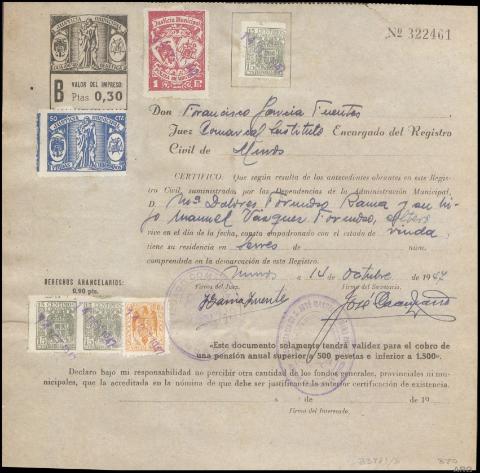 JUSTICIA MUNICIPAL
B VALOR DEL IMPRESO:
Ptas 0,30
Justicia Municipal
1
50 CTS
JUSTICIA MUNICIPAL
Nº 322461
Don Francisco García Fuentes
Juez Comarcal Sustituto Encargado del Registro
Civil de Muros
CERTIFICO: Que según resulta de los antecedentes obrantes en este Regis-
tro Civil, suministrados por las Dependencias de la Administración Municipal,
D. Mª Dolores Formoso Rama y su hi-
jo Manuel Vázquez Formoso,
vive en el día de la fecha, consta empadronado con el estado de viuda
tiene su residencia en Serres de núm.
comprendida en la demarcación de este Registro.
Muros a 14 de octubre de 1947
Firma del Juez. Firma del Secretario.
José
DERECHOS ARANCELARIOS:
0,90 pts.
15 15
«Este documento solamente tendrá validez para el cobro de
una pensión anual superior a 500 pesetas e inferior a 1.500».
Declaro bajo mi responsabilidad no percibir otra cantidad de los fondos generales, provinciales ni
municipales, que la acreditada en la nómina de que debe ser justificante la anterior certificación de existencia.
a de de 19
Firma del Interesado.